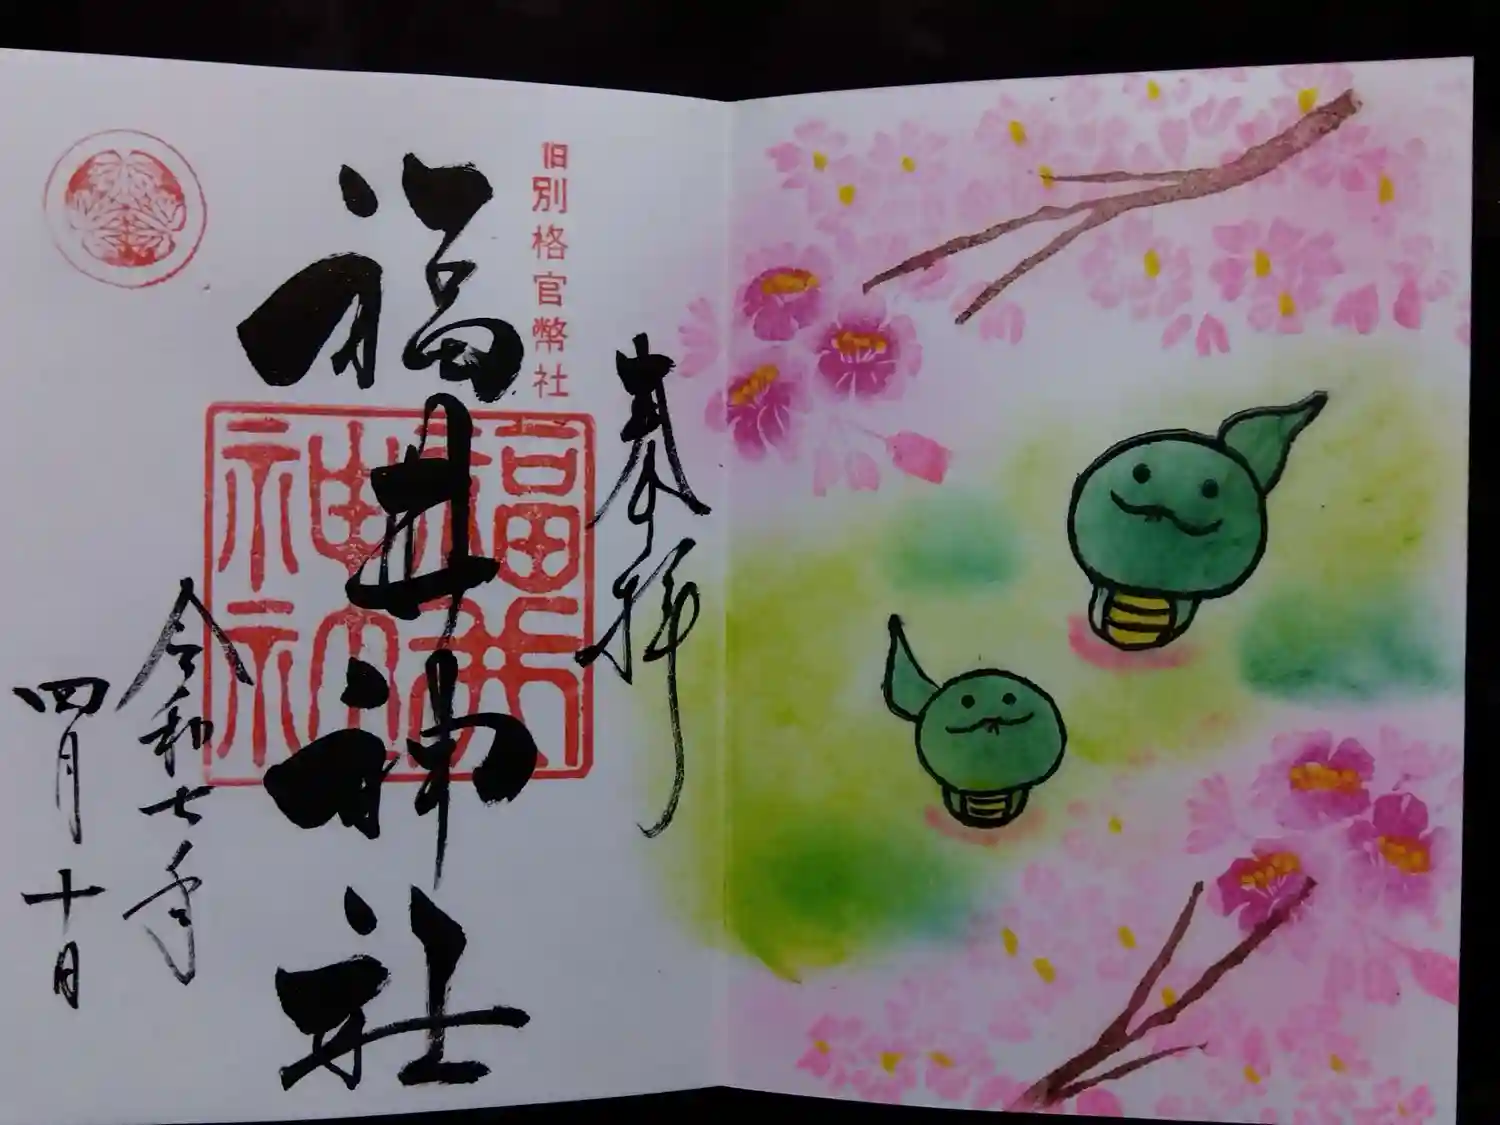 奉拝
旧別格官幣社
福井神社
福井神社
令和七年
四月十日